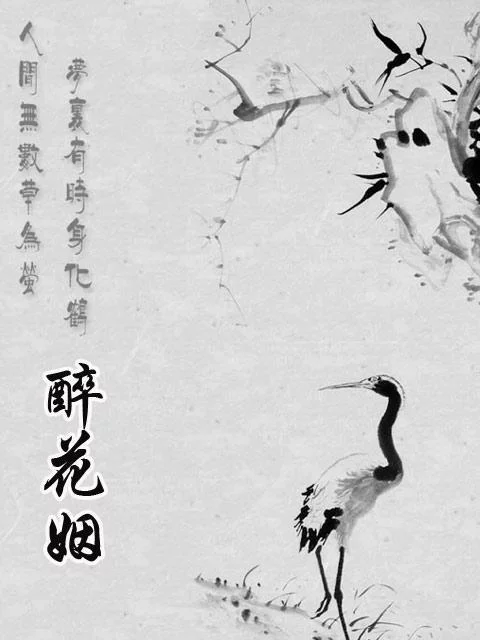 夢裏有時身化鶴
人間無數草為螢
醉花姻